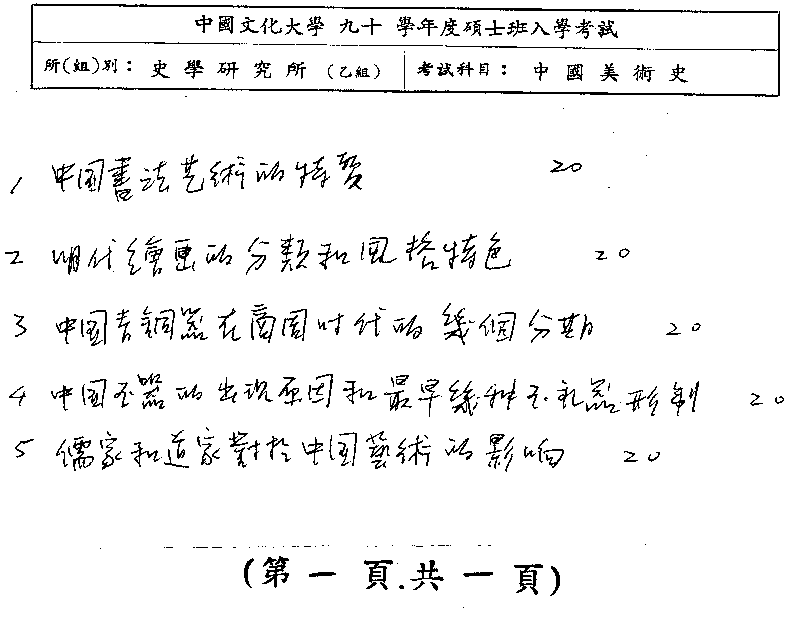 中國文化大學 九十 學年度碩士班入學考試
所(組)別：史學研究所（乙組） 考試科目：中國美術史
1 中国書法艺術的特質 20
2 明代繪画的分類和風格特色 20
3 中国青銅器在商周时代的幾個分期 20
4 中国玉器的出现原因和最早幾种玉礼器形制 20
5 儒家和道家對於中国藝術的影响 20
(第一頁.共一頁)